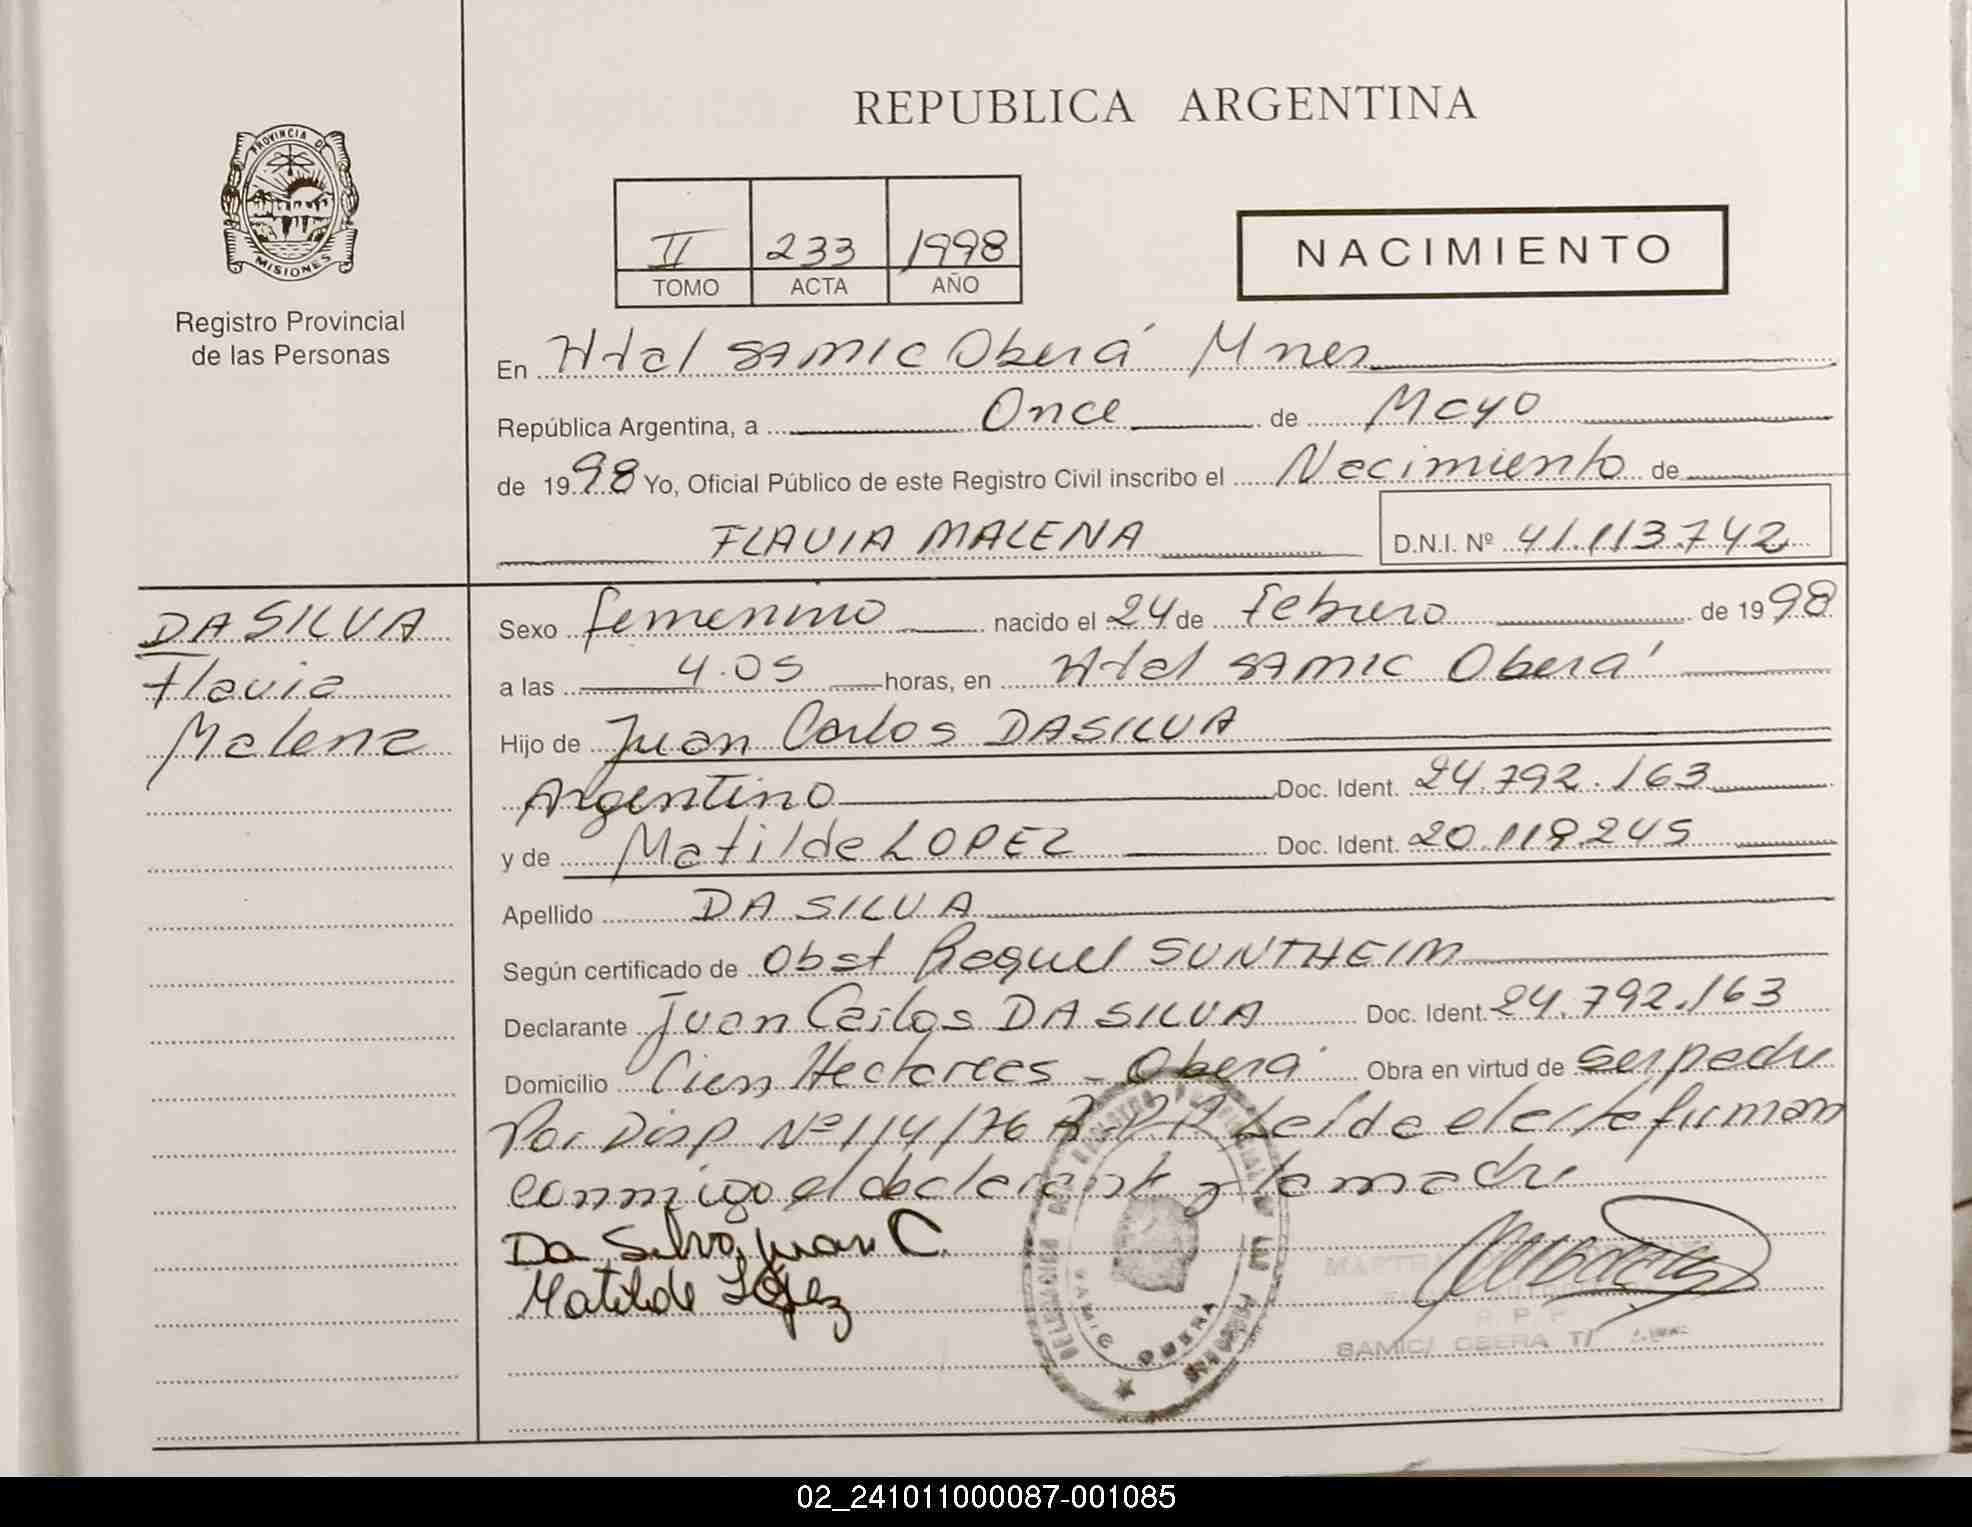 REPUBLICA ARGENTINA
PROVINCIA DE
MISIONES
Registro Provincial
de las Personas
II 233 1998
TOMO ACTA AÑO
NACIMIENTO
En Htal SAMIC Oberá Mnes
República Argentina, a Once de Mayo
de 1998 Yo, Oficial Público de este Registro Civil inscribo el Nacimiento de
FLAVIA MALENA D.N.I. Nº 41.113.742
DA SILVA
Flavia
Malena
Sexo femenino nacido el 24 de febrero de 1998
a las 4.05 horas, en Htal SAMIC Oberá
Hijo de Juan Carlos DASILVA
Argentino Doc. Ident. 24.792.163
y de Matilde LOPEZ Doc. Ident. 20.119.245
Apellido DA SILVA
Según certificado de Obst Raquel SUNTHEIM
Declarante Juan Carlos DA SILVA Doc. Ident. 24.792.163
Domicilio Cien Hectareas - Oberá Obra en virtud de ser padre
Por Disp Nº 114/76 Leída el acta firman
conmigo el declarante y la madre
Da Silva Juan C.
Matilde López
DELEGACION DEL REGISTRO PROVINCIAL DE
SAMIC OBERA
SAMIC/ OBERA T/
02_241011000087-001085